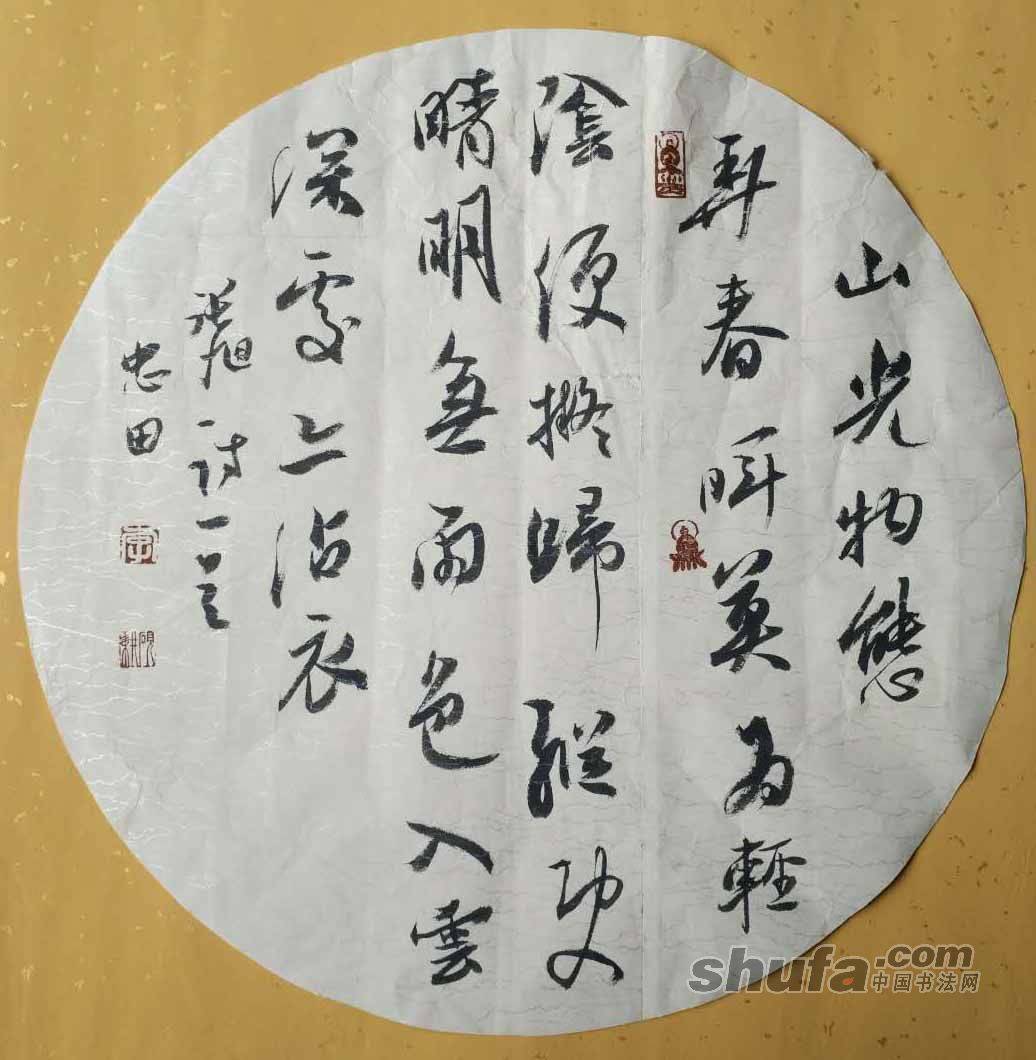 山光物態
弄春暉莫為輕
陰便擬歸縱使
晴明無雨色入雲
深處亦沾衣
張旭詩一首
忠田
shufa.com
中国书法网